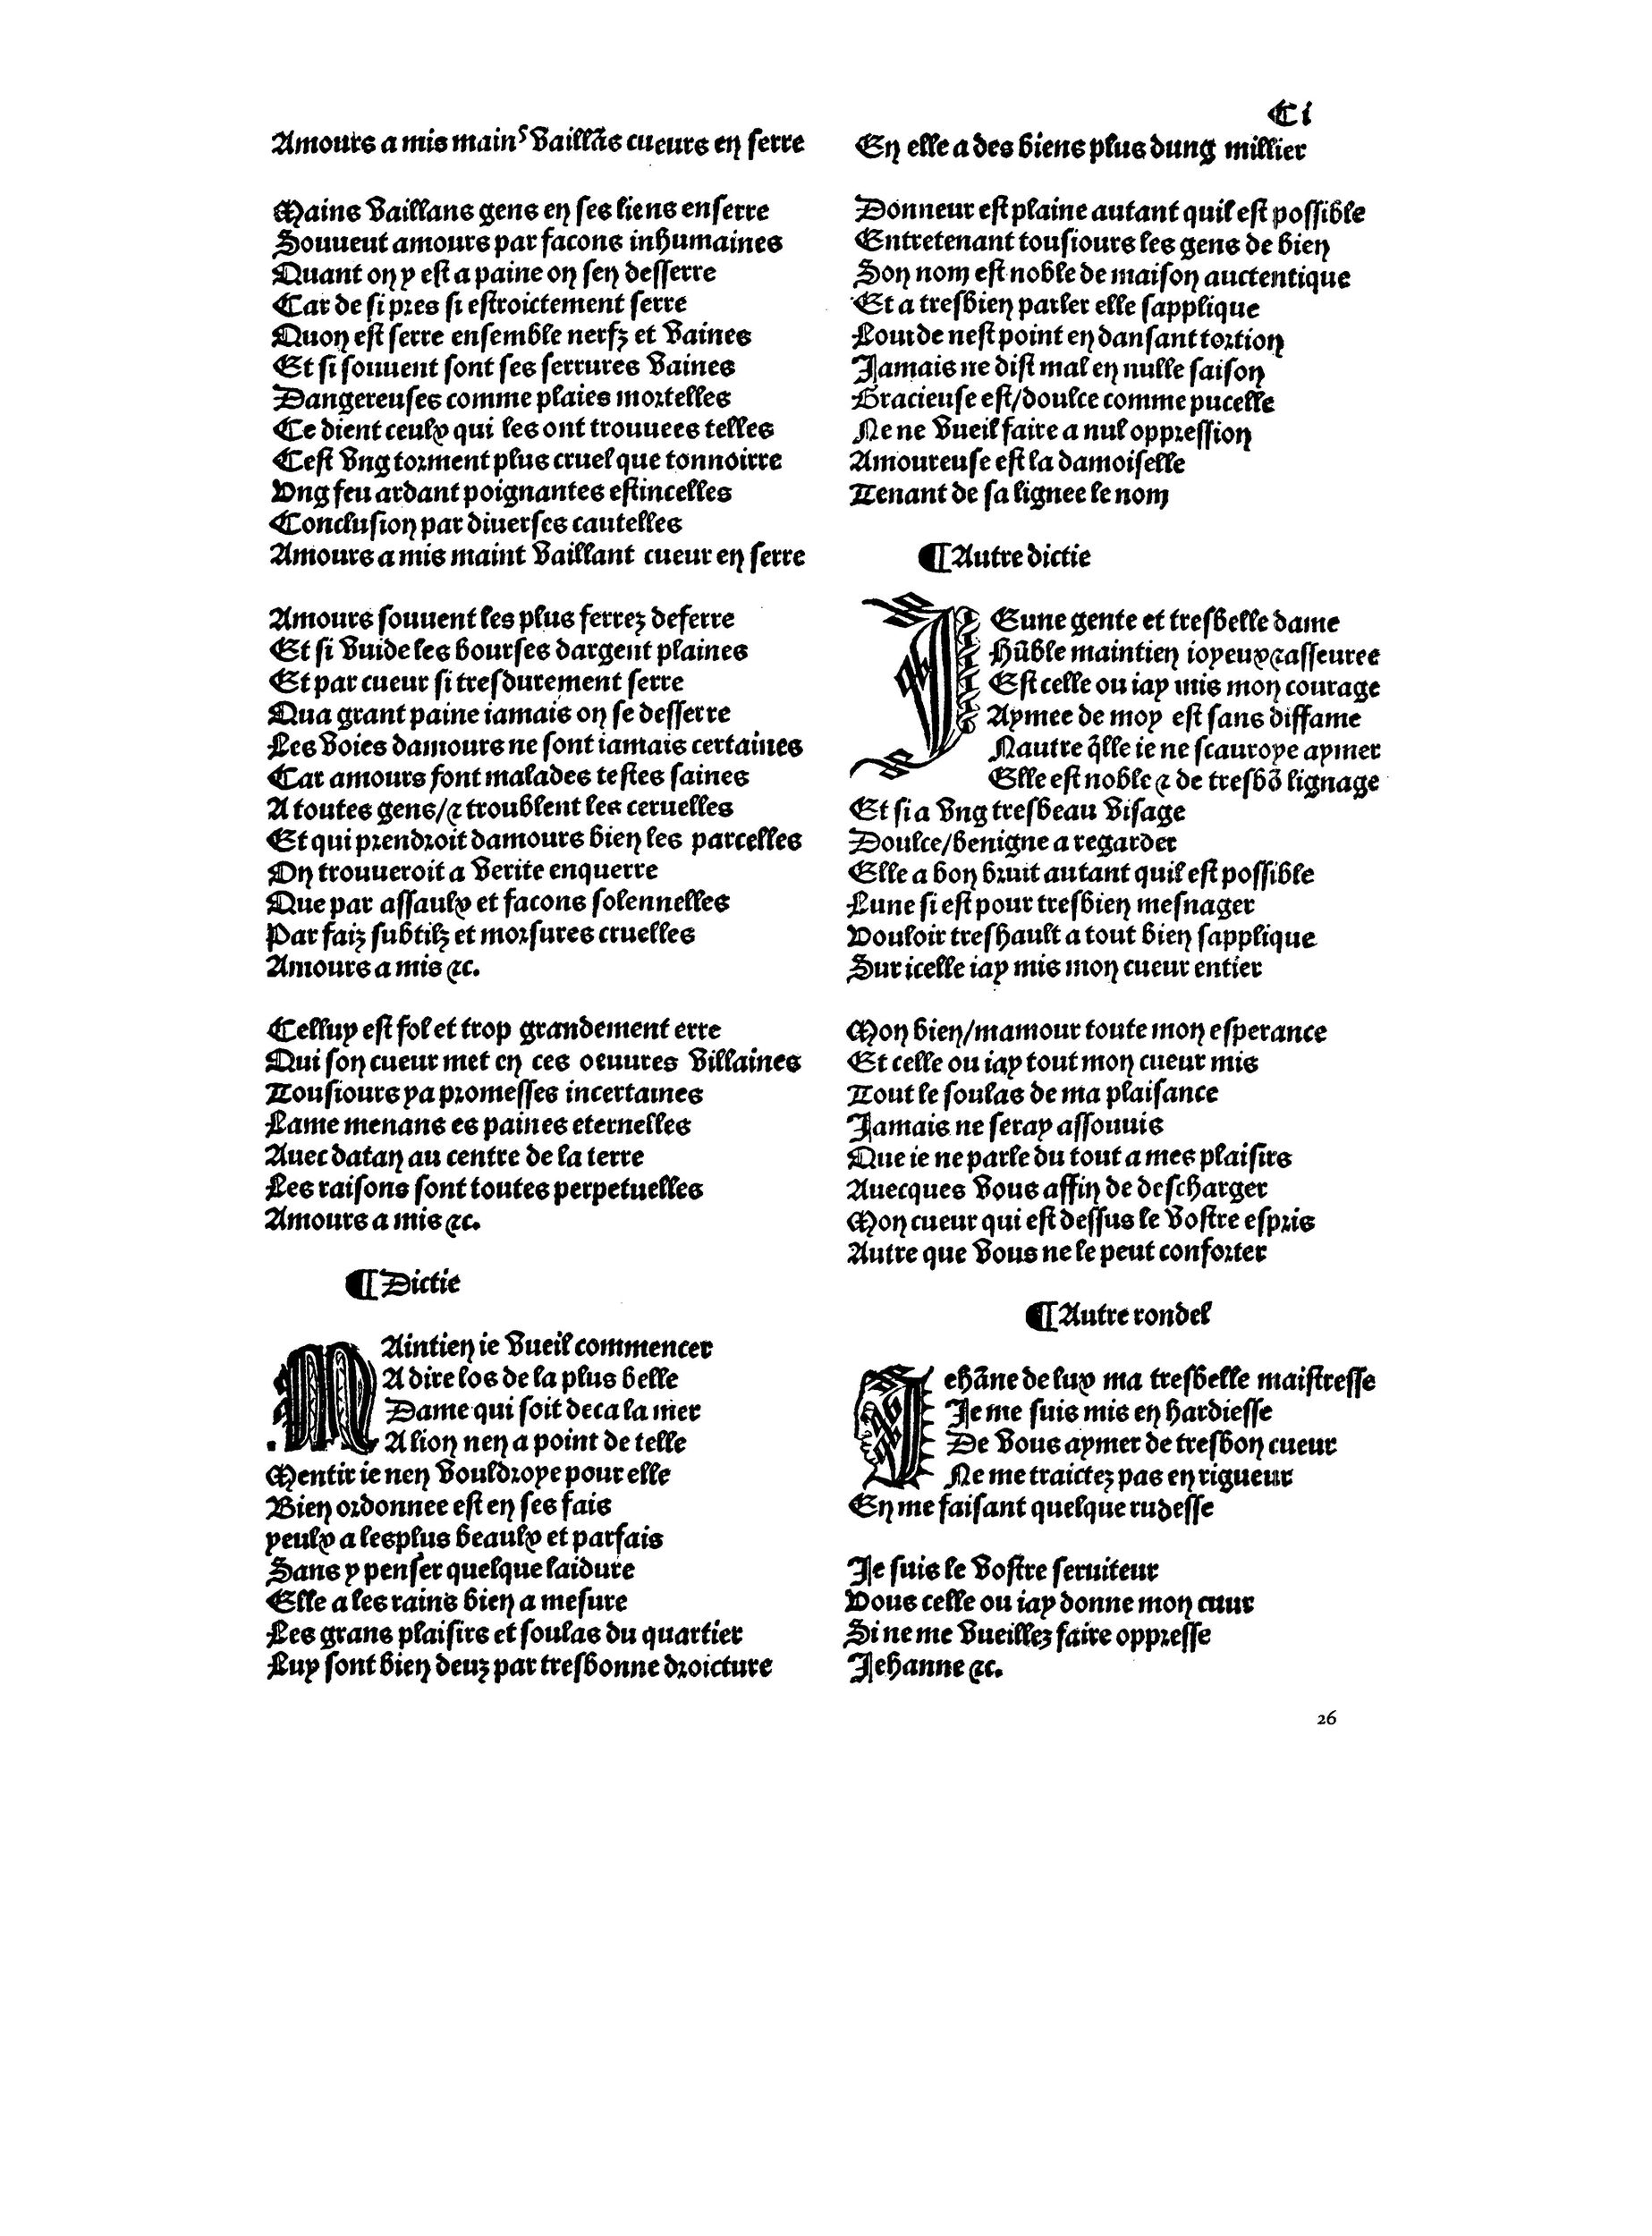 Ci
Amours a mis mains vaillãs cueurs en serre

Mains vaillans gens en ses liens enserre
Souueut amours par facons inhumaines
Quant on y est a paine on sen desserre
Car de si pres si estroictement serre
Quon est serre ensemble nerfz et vaines
Et si souuent sont ses serrures vaines
Dangereuses comme plaies mortelles
Ce dient ceulx qui les ont trouuees telles
Cest vng torment plus cruel que tonnoirre
Vng feu ardant poignantes estincelles
Conclusion par diuerses cautelles
Amours a mis maint vaillant cueur en serre

Amours souuent les plus ferrez deferre
Et si vuide les bourses dargent plaines
Et par cueur si tresdurement serre
Qua grant paine iamais on se desserre
Les voies damours ne sont iamais certaines
Car amours font malades testes saines
A toutes gens/⁊ troublent les ceruelles
Et qui prendroit damours bien les parcelles
On trouueroit a verite enquerre
Que par assaulx et facons solennelles
Par faiz subtilz et morsures cruelles
Amours a mis ⁊c.

Celluy est fol et trop grandement erre
Qui son cueur met en ces oeuures villaines
Tousiours ya promesses incertaines
Lame menans es paines eternelles
Auec datan au centre de la terre
Les raisons sont toutes perpetuelles
Amours a mis ⁊c.

¶ Dictie

MAintien ie vueil commencer
A dire los de la plus belle
Dame qui soit deca la mer
A lion nen a point de telle
Mentir ie nen vouldroye pour elle
Bien ordonnee est en ses fais
yeulx a lesplus beaulx et parfais
Sans y penser quelque laidure
Elle a les rains bien a mesure
Les grans plaisirs et soulas du quartier
Luy sont bien deuz par tresbonne droicture
En elle a des biens plus dung millier

Donneur est plaine autant quil est possible
Entretenant tousiours les gens de bien
Son nom est noble de maison auctentique
Et a tresbien parler elle sapplique
Lourde nest point en dansant tortion
Jamais ne dist mal en nulle saison
Gracieuse est/doulce comme pucelle
Ne ne vueil faire a nul oppression
Amoureuse est la damoiselle
Tenant de sa lignee le nom

¶ Autre dictie

IEune gente et tresbelle dame
Hũble maintien ioyeux⁊asseuree
Est celle ou iay mis mon courage
Aymee de moy est sans diffame
Nautre q̃lle ie ne scauroye aymer
Elle est noble ⁊ de tresbõ lignage
Et si a vng tresbeau visage
Doulce/benigne a regarder
Elle a bon bruit autant quil est possible
Lune si est pour tresbien mesnager
Vouloir treshault a tout bien sapplique
Sur icelle iay mis mon cueur entier

Mon bien/mamour toute mon esperance
Et celle ou iay tout mon cueur mis
Tout le soulas de ma plaisance
Jamais ne seray assouuis
Que ie ne parle du tout a mes plaisirs
Auecques vous affin de descharger
Mon cueur qui est dessus le vostre espris
Autre que vous ne le peut conforter

¶ Autre rondel

Jehãne de lux ma tresbelle maistresse
Je me suis mis en hardiesse
De vous aymer de tresbon cueur
Ne me traictez pas en rigueur
En me faisant quelque rudesse

Je suis le vostre seruiteur
Vous celle ou iay donne mon cuur
Si ne me vueillez faire oppresse
Jehanne ⁊c.
26